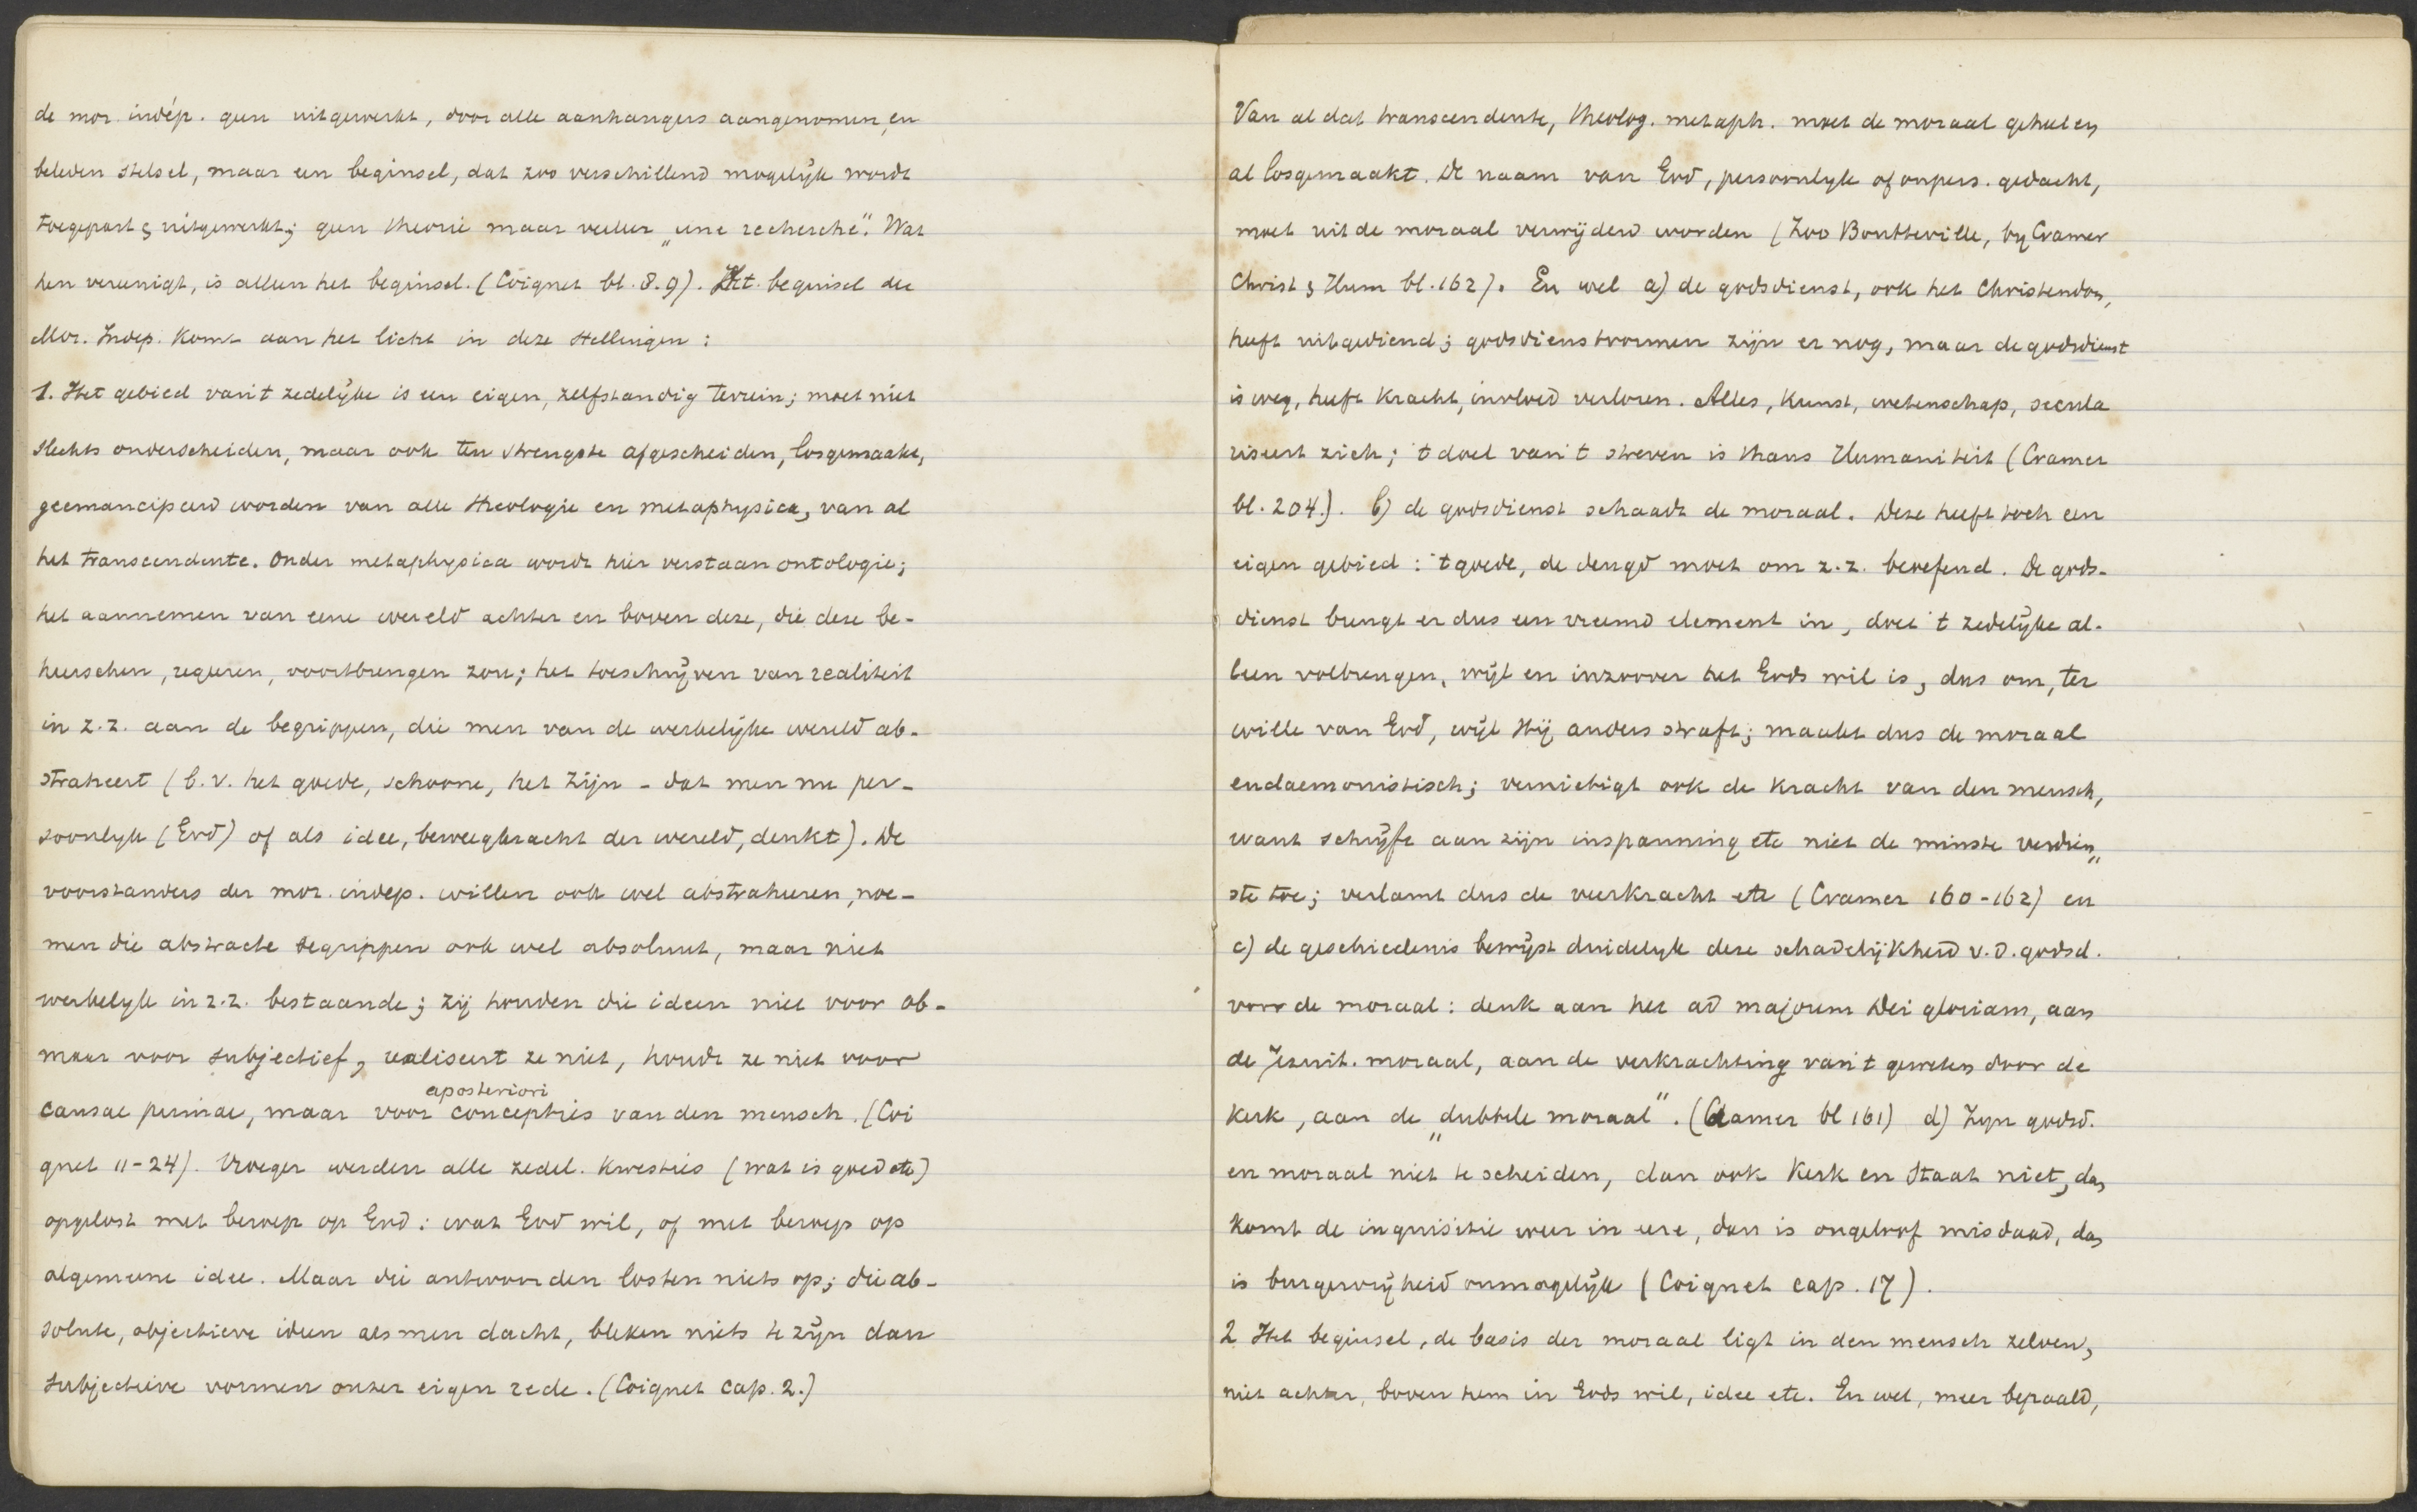 de mor. indép. geen uitgewerkt, door alle aanhangers aangenomen, en
beleden stelsel, maar een beginsel, dat zoo verschillend mogelijk wordt
toegepast & uitgewerkt; geen theorie maar veeleer „une recherche”. Wat
hen vereenigt, is alleen het beginsel. (Coignet bl. 8.9). Het beginsel der
Mor. Indep. komt aan het licht in deze stellingen:
1. Het gebied van 't zedelijke is een eigen, zelfstandig terrein; moet niet
slechts onderscheiden, maar ook ten strengste afgescheiden, losgemaakt,
geemancipeerd worden van alle theologie en metaphysica, van al
het transcendente. Onder metaphysica wordt hier verstaan ontologie;
het aannemen van eene wereld achter en boven deze, die deze be-
heerschen, regeeren, voortbrengen zou; het toeschrijven van realiteit
in z.z. aan de begrippen, die men van de werkelijke wereld ab-
straheert (b.v. het goede, schoone, het zijn - dat men nu per-
soonlyk (God) of als idee, beweegkracht der wereld, denkt). De
voorstanders der mor. indep. willen ook wel abstraheeren, noe-
men die abstracte begrippen ook wel absoluut, maar niet
werkelyk in z.z. bestaande; zij houden die ideen niet voor ob-
maar voor subjectief, realiseert ze niet, houdt ze niet voor
aposteriori
causae primae, maar voor concepties van den mensch. (Coi
gnet 11-24). Vroeger werden alle zedel. kwesties (wat is goed etc)
opgelost met beroep op God: wat God wil, of met beroep op
algemeene idee. Maar die antwoorden losten niets op; die ab-
solute, objectieve ideen als men dacht, bleken niets te zijn dan
subjectieve vormen onzer eigen rede. (Coignet Cap. 2.)
Van al dat transcendente, theolog. metaph. moet de moraal geheel en
al losgemaakt. De naam van God, persoonlyk of onpers. gedacht,
moet uit de moraal verwijderd worden (Zoo Boutteville, by Cramer
Christ & Hum bl. 162). En wel a) de godsdienst, ook het Christendom,
heeft uitgediend; godsdienstvormen zijn er nog, maar de godsdienst
is weg, heeft kracht, invloed verloren. Alles, kunst, wetenschap, secula
riseert zich; 't doel van 't streven is thans Humaniteit (Cramer
bl. 204). b) de godsdienst schaadt de moraal. Deze heeft toch een
eigen gebied: 't goede, de deugd moet om z.z. beoefend. De gods-
dienst brengt er dus een vreemd element in, doet 't zedelijke al-
leen volbrengen, wijl en inzoover het Gods wil is, dus om, ter
wille van God, wijl Hij anders straft; maakt dus de moraal
eudaemonistisch; vernietigt ook de kracht van den mensch,
want schrijft aan zijn inspanning etc niet de minste verdien„
ste toe; verlamt dus de veerkracht etc (Cramer 160-162) en
c) de geschiedenis bewijst duidelyk deze schadelijkheid v.d. godsd.
voor de moraal: denk aan het ad majorem Dei gloriam, aan
de Jezuit. moraal, aan de verkrachting van 't geweten door de
kerk, aan de „dubbele moraal”. (Cramer bl 161) d) Zyn godsd.
en moraal niet te scheiden, dan ook Kerk en Staat niet, dan
komt de inquisitie weer in eere, dan is ongeloof misdaad, dan
is burgervrijheid onmogelijk (Coignet cap. 17).
2 Het beginsel, de basis der moraal ligt in den mensch zelven,
niet achter, boven hem in Gods wil, idee etc. En wel, meer bepaald,